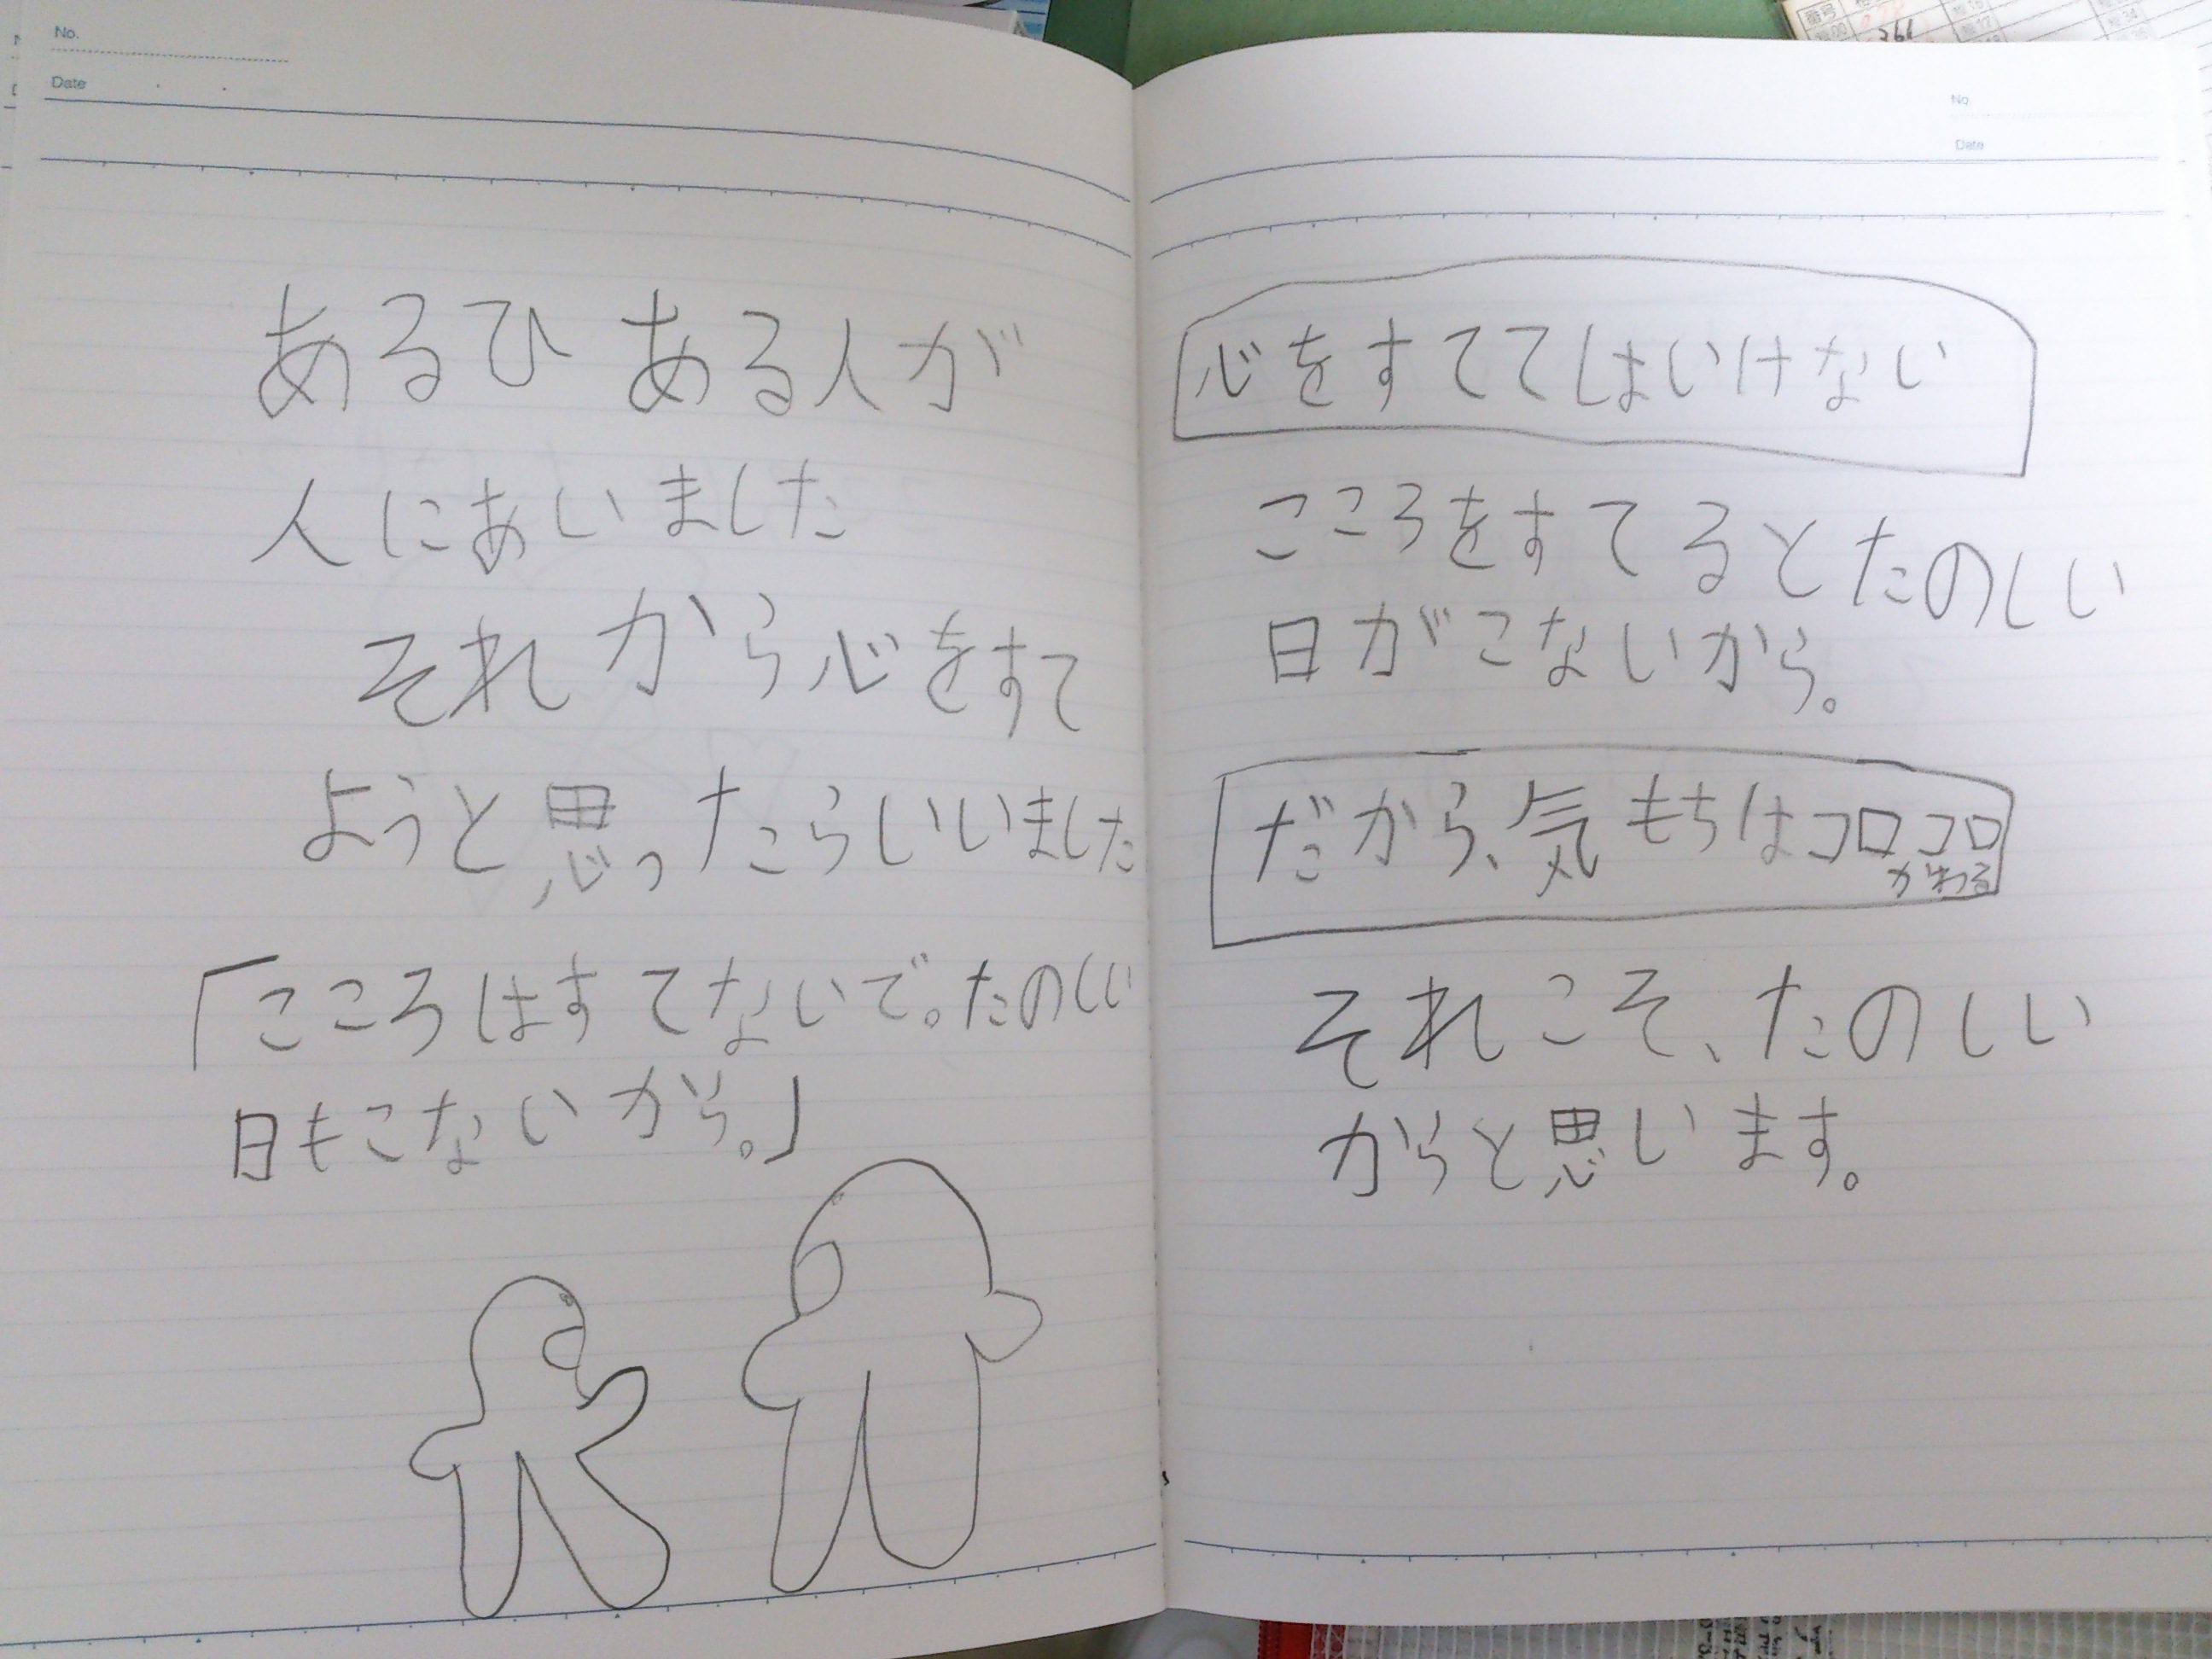 No.
Date
あるひ ある人が
人にあいました
それから心をすて
ようと思ったらいいました
「こころはすてないで。たのしい
日もこないから。」
No
Date
心をすててはいけない
こころをすてるとたのしい
日がこないから。
だから、気もちはコロコロ
かわる
それこそ、たのしい
からと思います。
番号